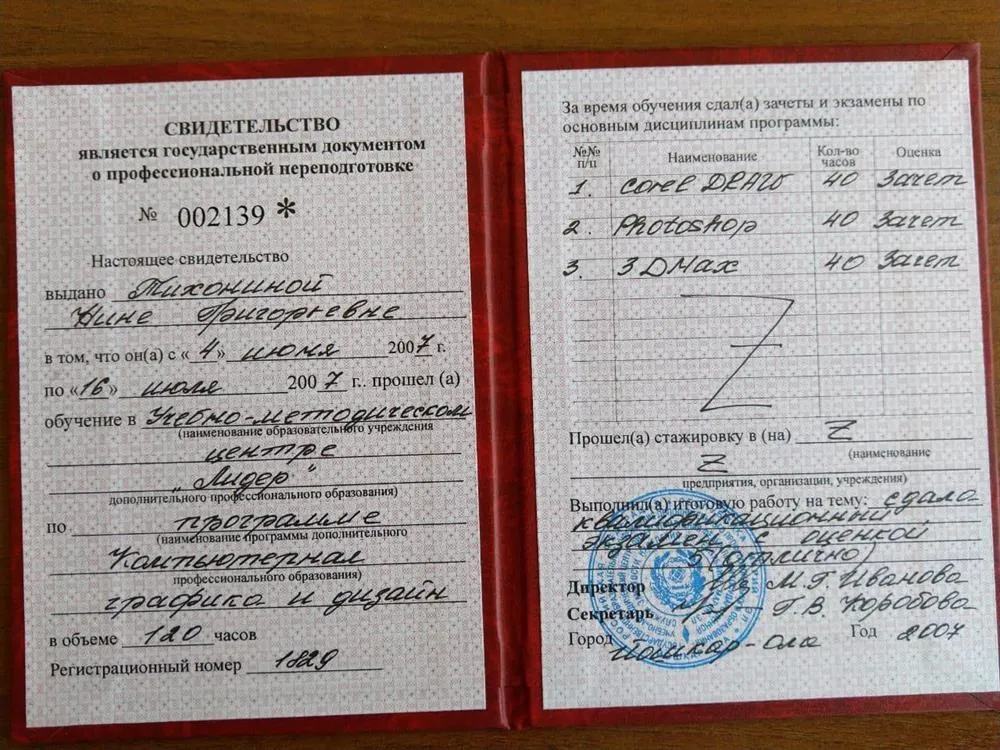 СВИДЕТЕЛЬСТВО
является государственным документом
о профессиональной переподготовке
№ 002139 *
Настоящее свидетельство
выдано Тихониной
Нине Григорьевне
в том, что он(а) с « 4 » июня 2007 г.
по «16» июля 2007 г.. прошел (а)
обучение в Учебно-методическом
(наименование образовательного учреждения
центре
„Лидер"
дополнительного профессионального образования)
по программе
(наименование программы дополнительного
Компьютерная
профессионального образования)
графика и дизайн
в объеме 120 часов
Регистрационный номер 1829
За время обучения сдал(а) зачеты и экзамены по
основным дисциплинам программы:
№№ п/п Наименование Кол-во часов Оценка
1. Corel DRAW 40 Зачет
2. Photoshop 40 Зачет
3. 3DMax 40 Зачет
Z
Прошел(а) стажировку в (на) Z
(наименование
Z
предприятия, организации, учреждения)
Выполнил(а) итоговую работу на тему: сдала
квалификационный
экзамен с оценкой
5 (отлично)
Директор М.Г. Иванова
Секретарь Г.В. Коробова
Город Йошкар-Ола Год 2007